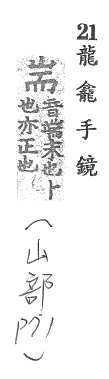 21龍龕手鏡
耑音端末也卜
也亦正也
(山部
P71)